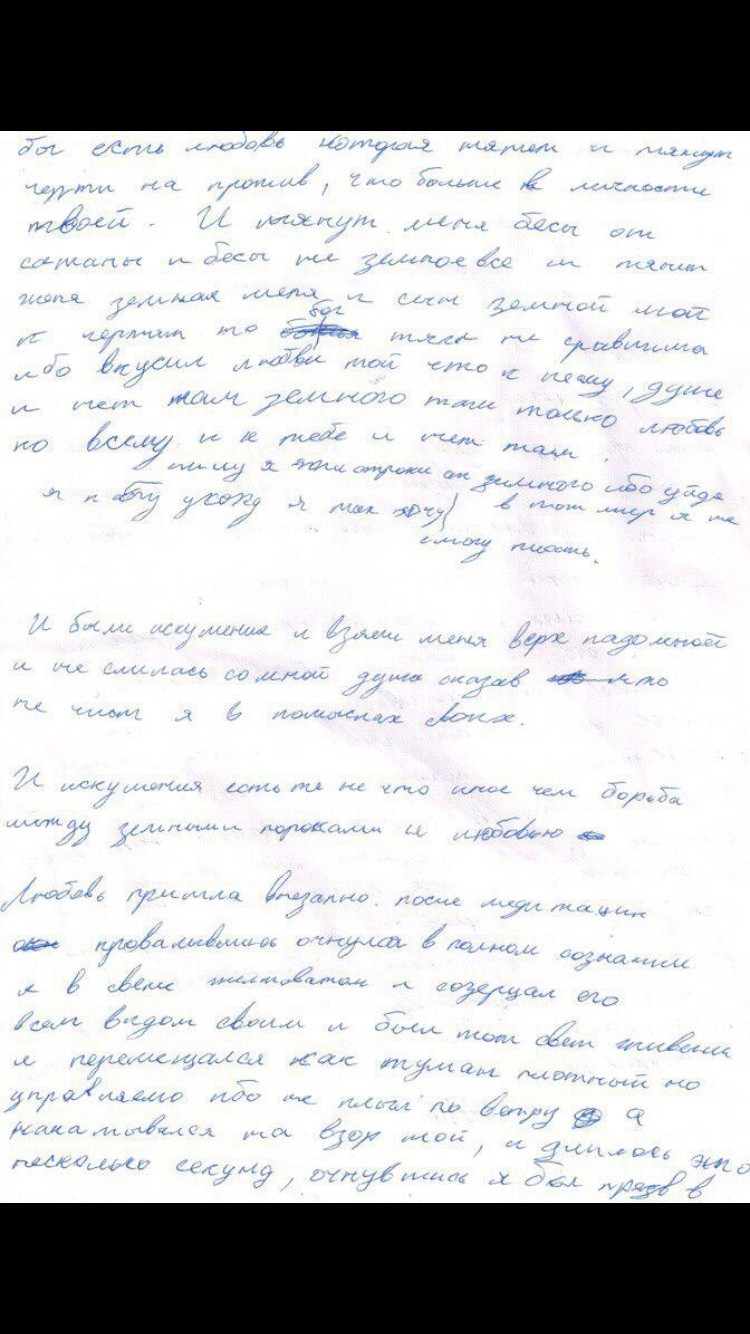 бог есть любовь которая тянет и тянут
черти на против, что больше в личности
твоей. И тянут меня бесы от
сатаны и бесы те земное все и тянет
жена земная меня и сын земной мой
к чертям то бог тяга не сравнима
ибо вкусил любви той что к нему, душе
и нет там земного там только любовь
ко всему и к тебе и нет там
пишу я эти строки от земного ибо уйдя
я к богу ухожу я так хочу в тот мир я не
смогу писать.
И были искушения и взяли меня верх надомной
и не слилась со мной душа сказав что
не чист я в помыслах своих.
И искушения есть те не что иное чем борьба
между земными пороками и любовью
Любовь пришла внезапно. после медитации
провалившись очнулся в полном сознании
я в свете желтоватом и созерцал его
всем видом своим и был тот свет
и перемещался как туман плотный но
управляемо ибо не плыл по ветру а
накатывался на взор мой, и длилось это
несколько секунд, очнувшись я был в